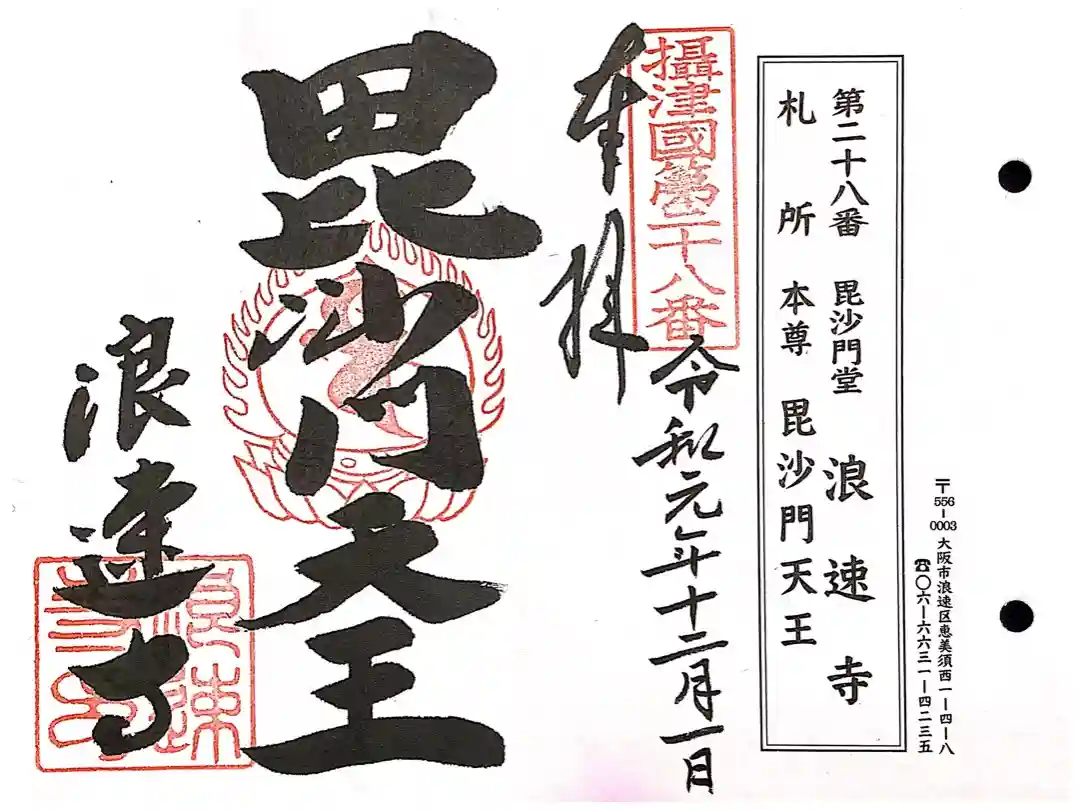 〒556-0003 大阪市浪速区恵美須西一-四-八
☎〇六-六六三一-四二三五
第二十八番 毘沙門堂 浪速寺
札所 本尊 毘沙門天王
攝津國第二十八番
令和元年十二月一日
奉拝
毘沙門天王
浪速寺
浪速
寺印